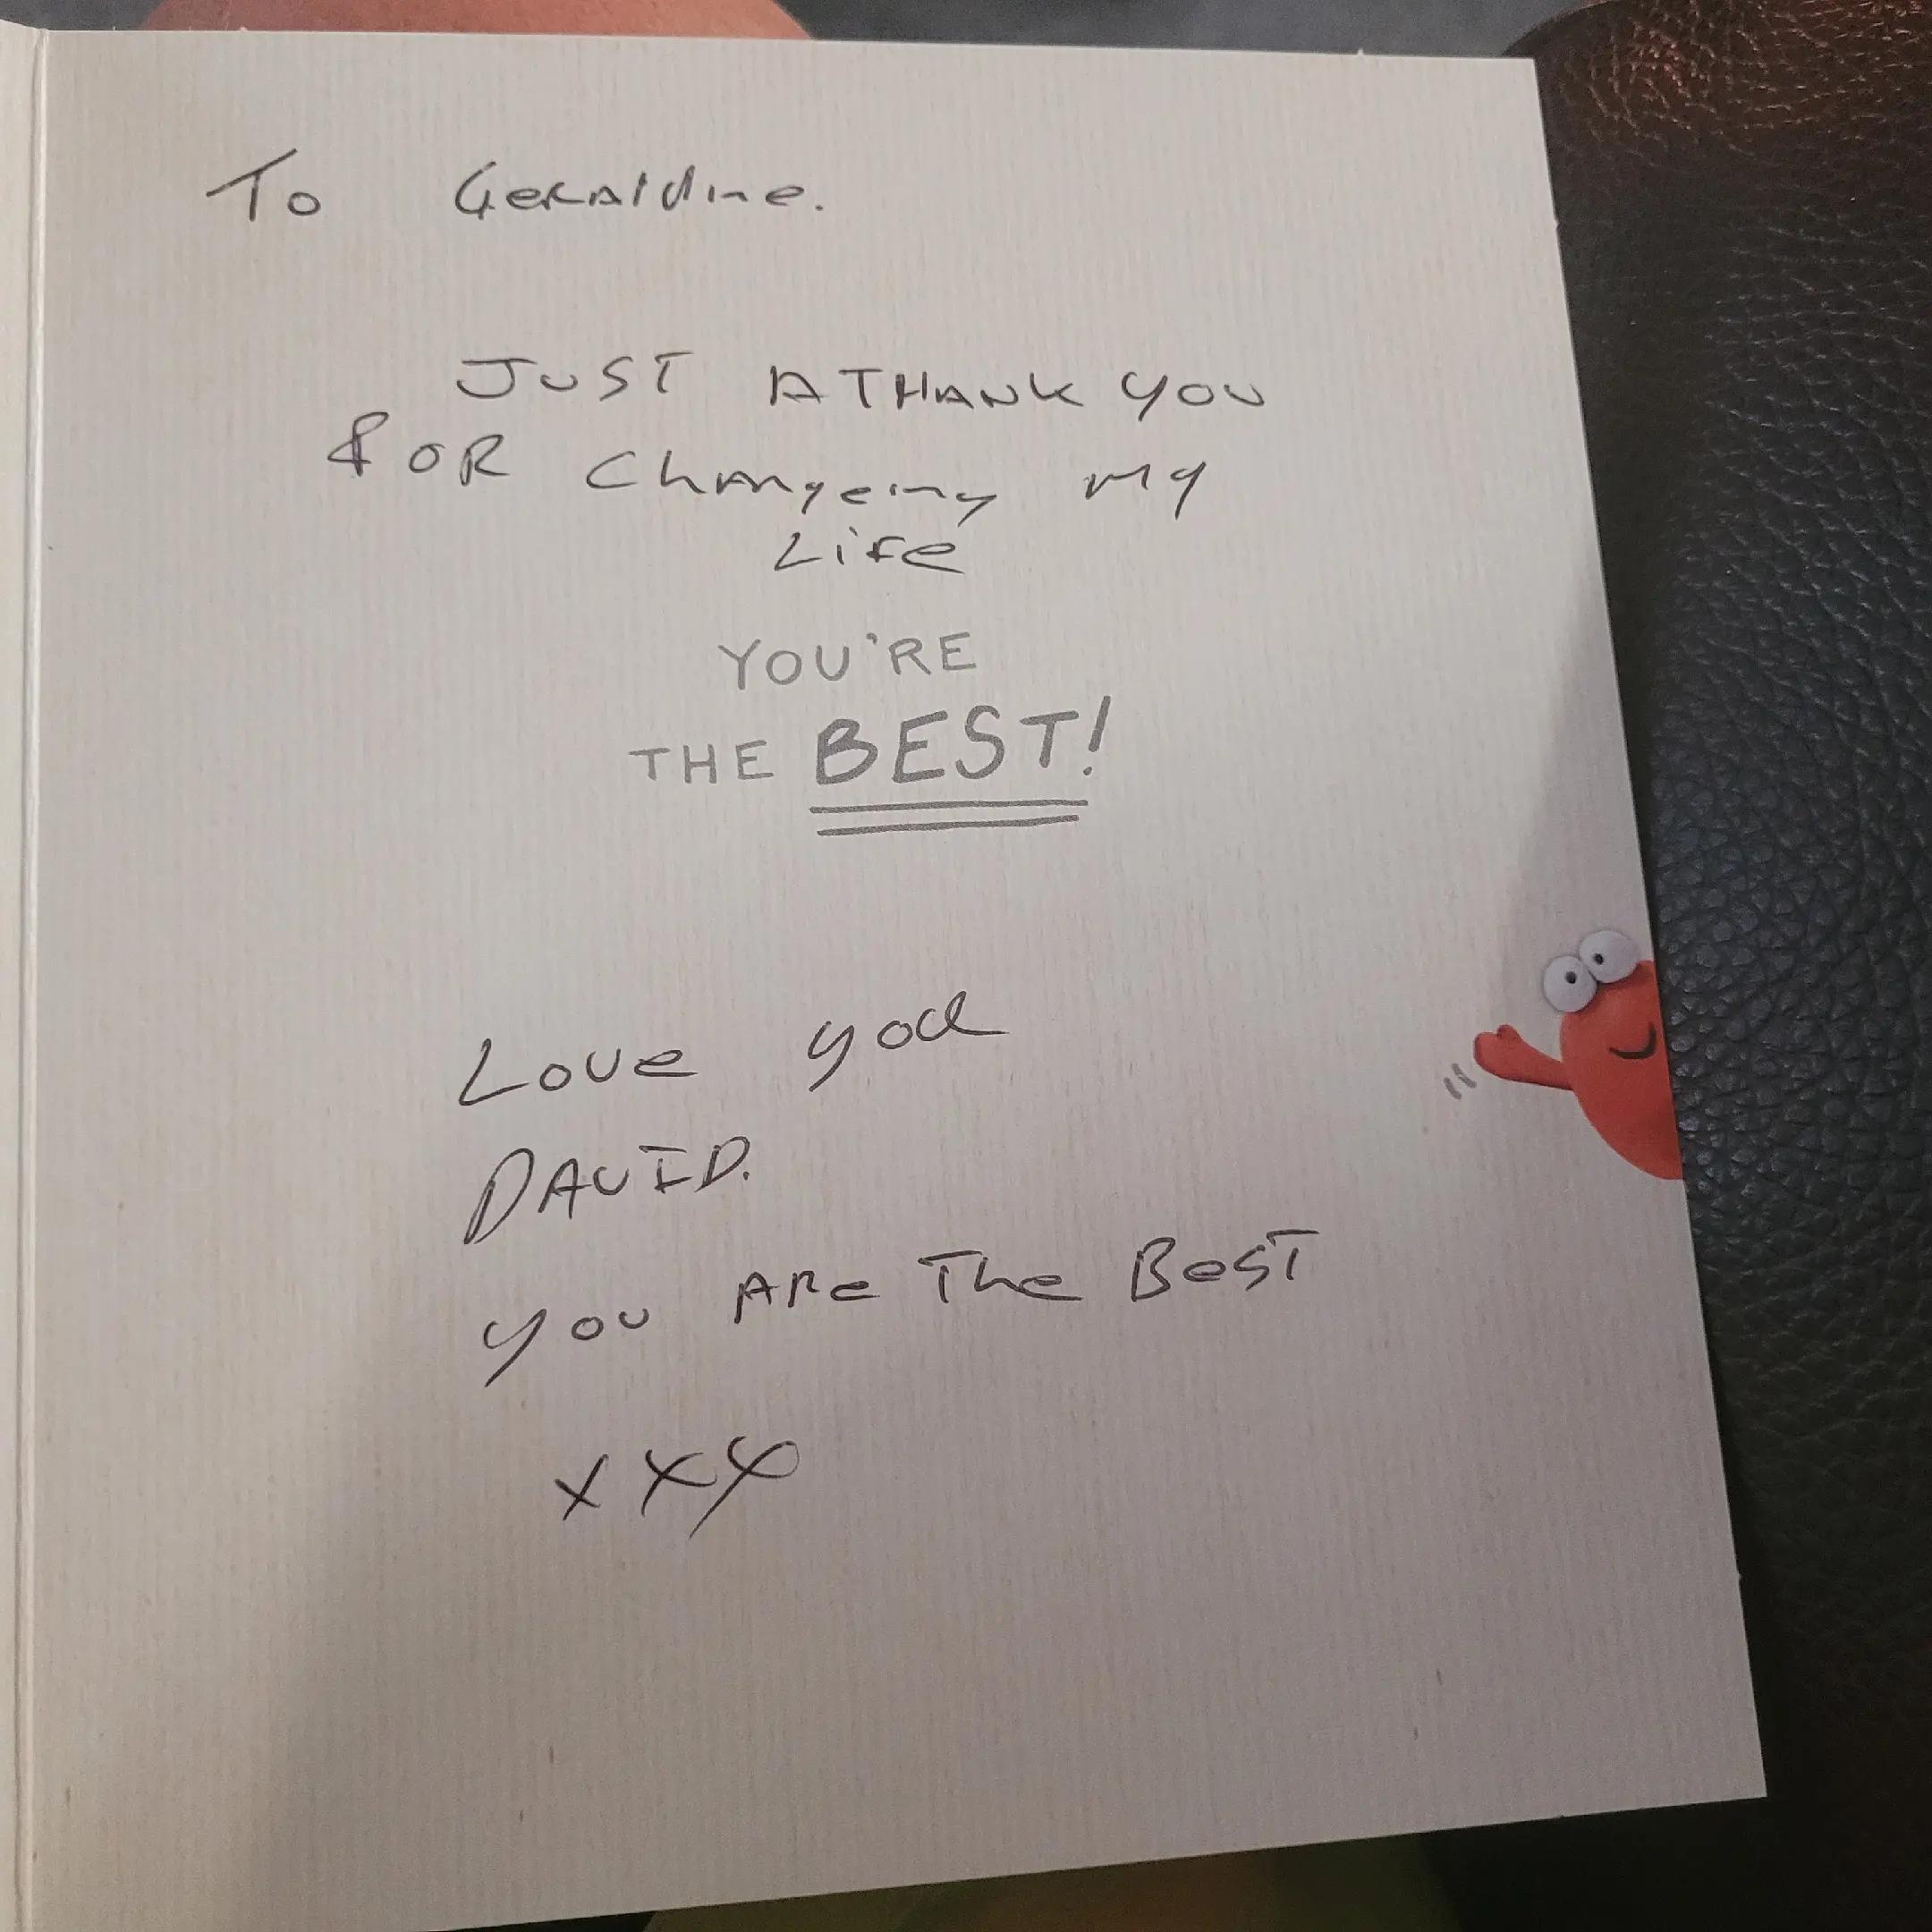 To Geraldine.
JUST A THANK YOU
FOR Changeing My
Life
YOU'RE
THE BEST!
Love you
DAVID.
you ARe The BesT
xxx